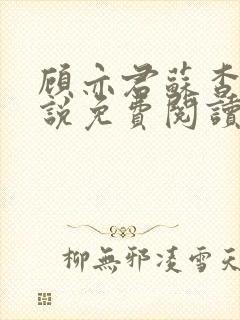 顾亦君蘇杳
說免費閱讀
柳無邪凌雪天